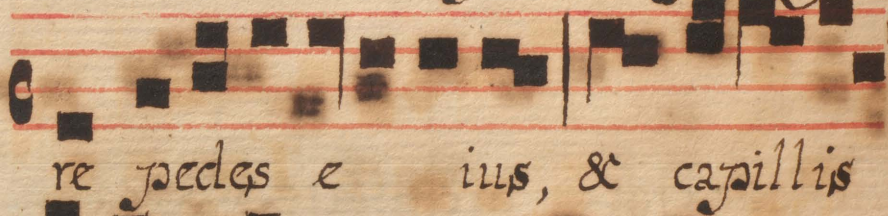 re pedes e ius, & capillis